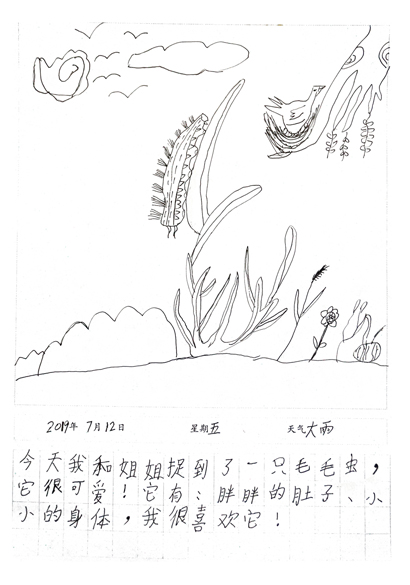 2019年 7月12日 星期五 天气大雨
今天我和姐姐捉到了一只毛毛虫，
它很可爱！它有：胖胖的肚子、小
小的身体，我很喜欢它！